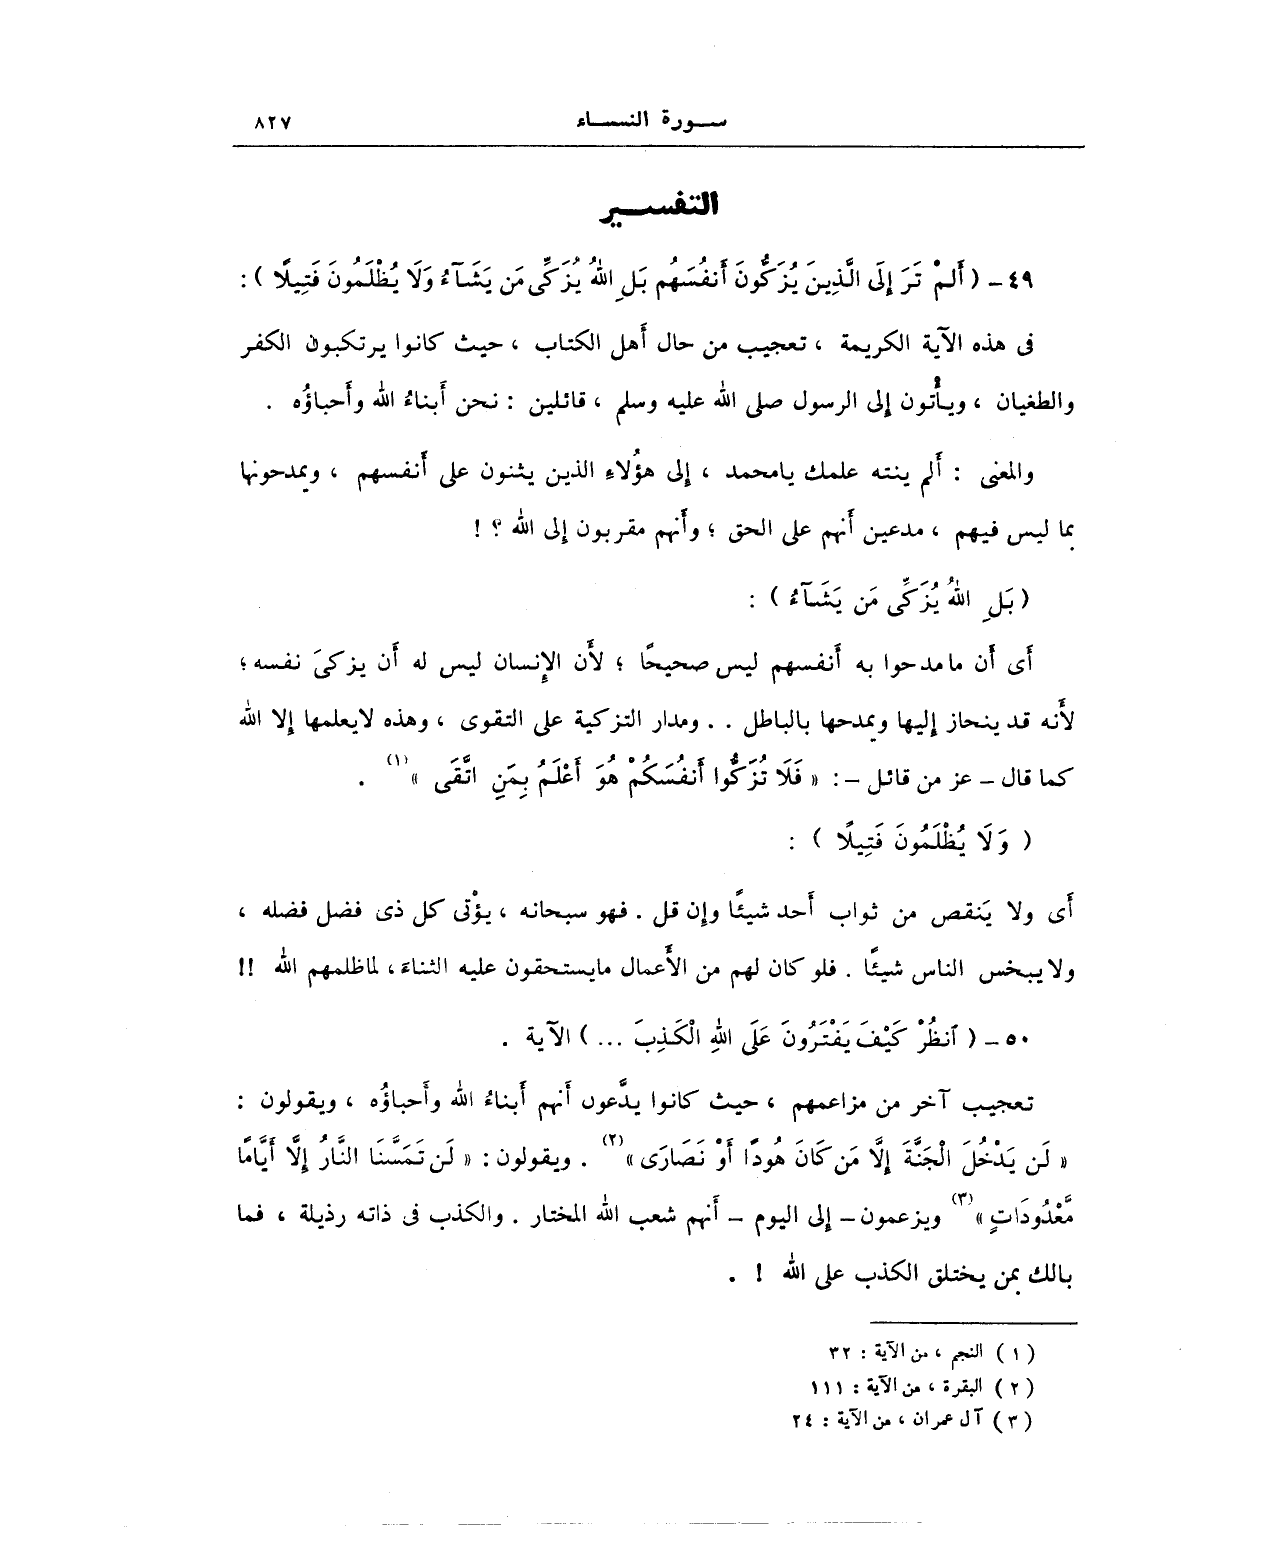 سورة النساء ٨٢٧
التفسير
٤٩ - ( أَلَمْ تَرَ إِلَى الَّذِينَ يُزَكُّونَ أَنفُسَهُم بَلِ اللهُ يُزَكِّى مَن يَشَآءُ وَلَا يُظْلَمُونَ فَتِيلًا ) :
فى هذه الآية الكريمة ، تعجيب من حال أهل الكتاب ، حيث كانوا يرتكبون الكفر
والطغيان ، ويأْتون إلى الرسول صلى الله عليه وسلم ، قائلين : نحن أبناءُ الله وأَحباؤُه .
والمعنى : أَلم ينته علمك يامحمد ، إلى هؤُلاءِ الذين يثنون على أَنفسهم ، ويمدحونها
بما ليس فيهم ، مدعين أَنهم على الحق ؛ وأَنهم مقربون إلى الله ؟ !
( بَلِ اللهُ يُزَكِّى مَن يَشَآءُ ) :
أَى أَن مامدحوا به أَنفسهم ليس صحيحًا ؛ لأَن الإِنسان ليس له أَن يزكىَ نفسه ؛
لأَنه قد ينحاز إليها ويمدحها بالباطل . . ومدار التزكية على التقوى ، وهذه لايعلمها إلا الله
كما قال - عز من قائل - : « فَلَا تُزَكُّوا أَنفُسَكُمْ هُوَ أَعْلَمُ بِمَنِ اتَّقَى »(١) .
( وَلَا يُظْلَمُونَ فَتِيلًا ) :
أَى ولا يَنقص من ثواب أَحد شيئًا وإن قل . فهو سبحانه ، يؤْتى كل ذى فضل فضله ،
ولايبخس الناس شيئًا . فلو كان لهم من الأَعمال مايستحقون عليه الثناءَ ، لماظلمهم الله !!
٥٠ - ( ٱنظُرْ كَيْفَ يَفْتَرُونَ عَلَى اللهِ الْكَذِبَ ... ) الآية .
تعجيب آخر من مزاعمهم ، حيث كانوا يدَّعون أَنهم أَبناءُ الله وأَحباؤُه ، ويقولون :
« لَن يَدْخُلَ الْجَنَّةَ إِلَّا مَن كَانَ هُودًا أَوْ نَصَارَى »(٢) . ويقولون : « لَن تَمَسَّنَا النَّارُ إِلَّا أَيَّامًا
مَّعْدُودَاتٍ »(٣) ويزعمون - إلى اليوم - أَنهم شعب الله المختار . والكذب فى ذاته رذيلة ، فما
بالك بمن يختلق الكذب على الله ! .
( ١ ) النجم ، من الآية : ٣٢
( ٢ ) البقرة ، من الآية : ١١١
( ٣ ) آل عمران ، من الآية : ٢٤